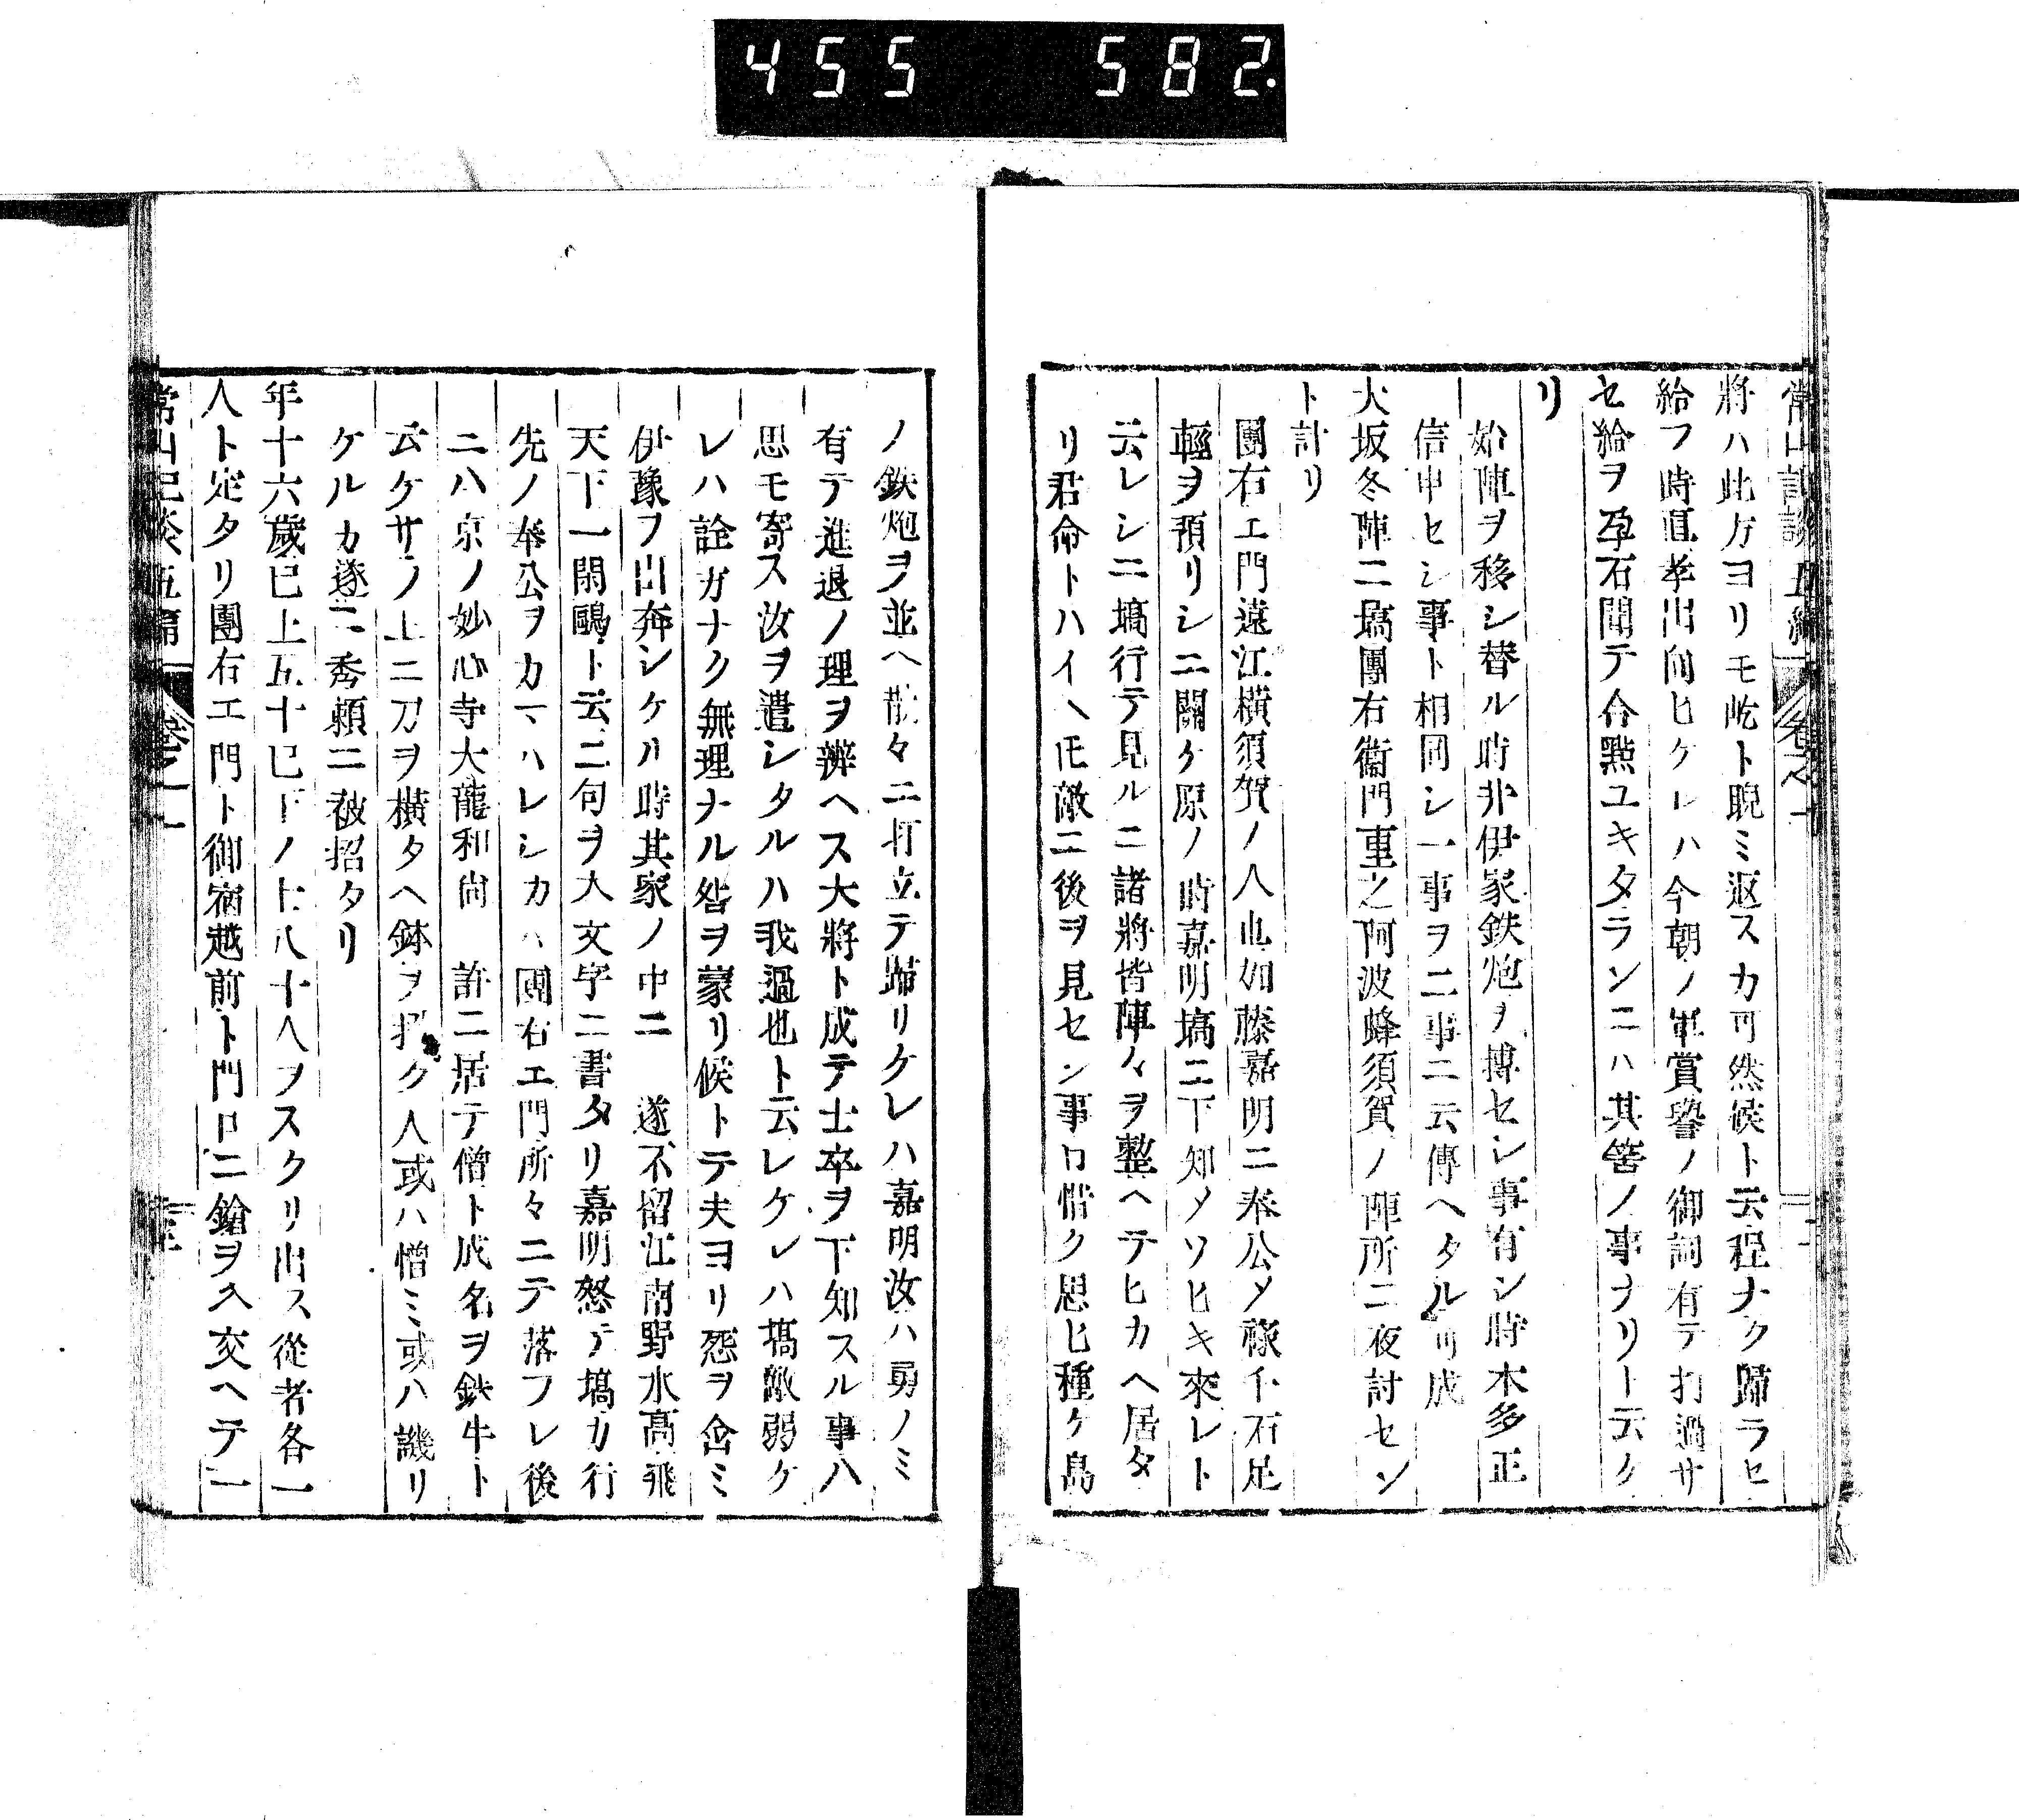 455 582.
常山記談 五編 卷之十
將ハ此方ヨリモ屹ト睨ミ返スカ可然候ト云程ナク歸ラセ
給フ時直孝出向ヒケレハ今朝ノ軍賞譽ノ御詞有テ打過サ
セ給ヲ孕石聞テ合點ユキタランニハ其筈ノ事ナリト云ク
リ
始陣ヲ移シ替ル時井伊家鉄炮ヲ摶セシ事有シ時本多正
信申セシ事ト相同シ一事ヲ二事ニ云傳ヘタル可成
大坂冬陣ニ塙團右衞門重之阿波蜂須賀ノ陣所ニ夜討セン
ト計リ
團右エ門遠江横須賀ノ人也加藤嘉明ニ奉公メ祿千石足
輕ヲ預リシニ關ケ原ノ時嘉明塙ニ下知メソヒキ來レト
云レシニ塙行テ見ルニ諸將皆陣々ヲ整ヘテヒカヘ居タ
リ君命トハイヘ𪜈敵ニ後ヲ見セン事口惜ク思ヒ種ケ島
ノ鉄炮ヲ並ヘ散々ニ打立テ歸リケレハ嘉明汝ハ勇ノミ
有テ進退ノ理ヲ辨ヘス大將ト成テ士卒ヲ下知スル事ハ
思モ寄ス汝ヲ遣シタルハ我過也ト云レケレハ塙敵弱ケ
レハ詮ガナク無理ナル咎ヲ蒙リ候トテ夫ヨリ怨ヲ含ミ
伊豫ヲ出奔シケル時其家ノ中ニ 遂不留江南野水高飛
天下一閑鷗ト云二句ヲ大文字ニ書タリ嘉明怒テ塙カ行
先ノ奉公ヲカマハレシカハ團右エ門所々ニテ落フレ後
ニハ京ノ妙心寺大龍和尚 許ニ居テ僧ト成名ヲ鉄牛ト
云ケサノ上ニ刀ヲ横タヘ鉢ヲ招ク人或ハ憎ミ或ハ譏リ
ケルカ遂ニ秀賴ニ被招タリ
年十六歳已上五十已下ノ士八十人ヲスクリ出ス從者各一
人ト定タリ團右エ門ト御宿越前ト門口ニ鎗ヲ入交ヘテ一
常山記談 五篇 卷之十